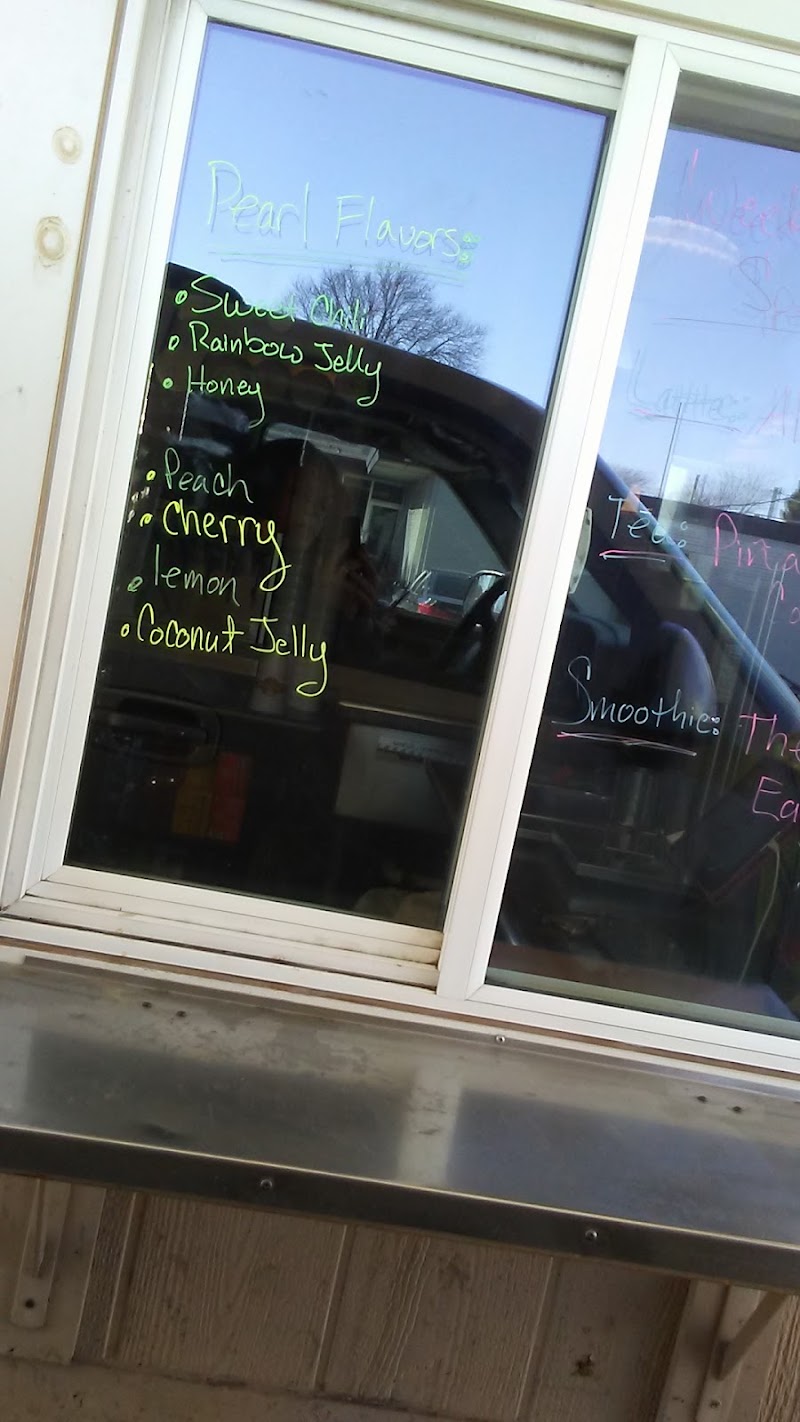 Pearl Flavors:
• Sweet Chili
• Rainbow Jelly
• Honey
• Peach
• Cherry
• lemon
• Coconut Jelly
Latte:
Tea:
Smoothie: The